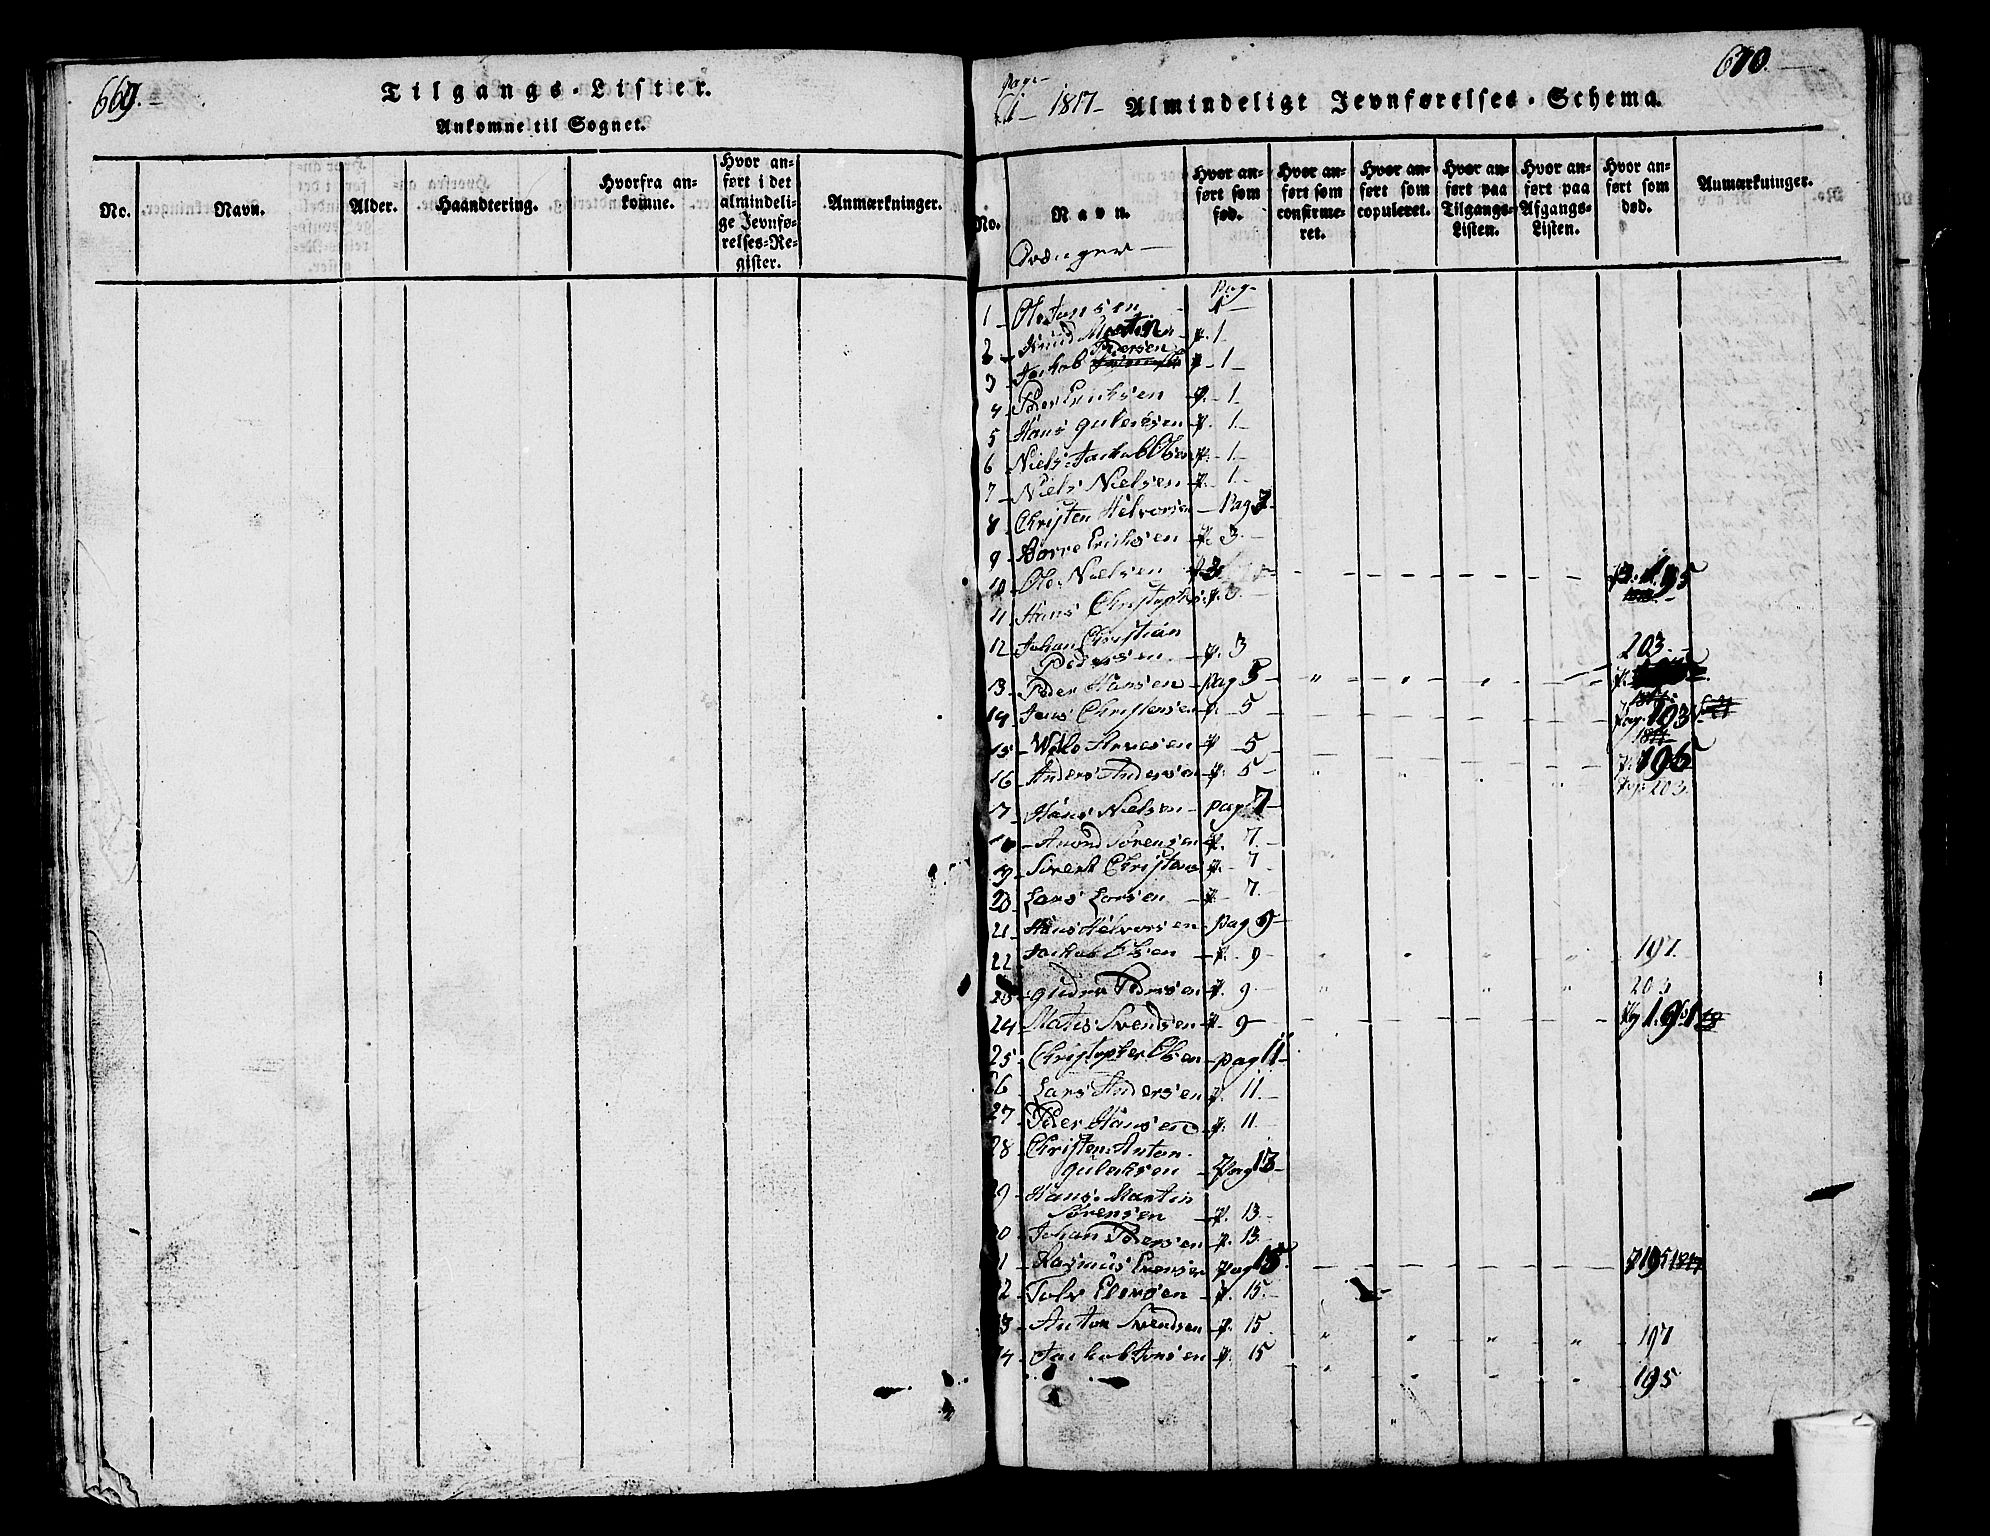 669.
Tilgangs-Lister.
Ankomne til Sognet.
No.
Navn.
Alder.
Haandtering.
Hvorfra an-
komne.
Hvor an-
ført i det
almindeli-
ge Jevnfø-
relses-Re-
gister.
Anmærkninger.
670.
Page
1 - 1817 - Almindeligt Jevnførelses-Schema.
No.
Navn.
Hvor an-
ført som
fød.
Hvor an-
ført som
confirme-
ret.
Hvor an-
ført som
copuleret.
Hvor an-
ført paa
Tilgangs-
Listen.
Hvor an-
ført paa
Afgangs-
Listen.
Hvor an-
ført som
død.
Anmærkninger.
Pag
1 Ole Jensen 1
2 Knud p. 1
Pedersen
3 Jackob p. 1
4 Peder Ericksen p. 1
5 Hans Gulichsen p. 1
6 Niels Jackob Olsen p. 1
7 Niels Nielsen p. 1
8 Christen Helvorsen Pag 3
9 Børre Ericksen p. 3
10 Ole Nielsen p. 3 195
11 Hans Christophers p. 3
12 Johan Christian
Pedersen p. 3 203
13 Peder Hansen pag 5
14 Jens Christensen p. 5 pag. 193
15 p. 5 195
16 Anders Andersen p. 5 203
17 Hans Nielsen pag 7
Anond Sørensen p. 7
19 Søren Christens p. 7
20 Lars Larsen p. 7
21 Hans Helvorsen Pag 9
22 Jackob Olsen p. 9 197
23 Pedersen p. 9 203
24 Mates Svendsen p. 9
25 Christopher Olsen pag 11
26 Lars Andersen p. 11
27 Peder Hansen p. 11
28 Christen Anton
Gulichsen Pag 13
9 Hans Martin
Sørensen p. 13
0 Johan Pedersen p. 13
1 Rasmus Evensen Pag 15 195
2 p. 15
3 Anton Svendsen p. 15 197
4 Jackob Jonsen p. 15 195